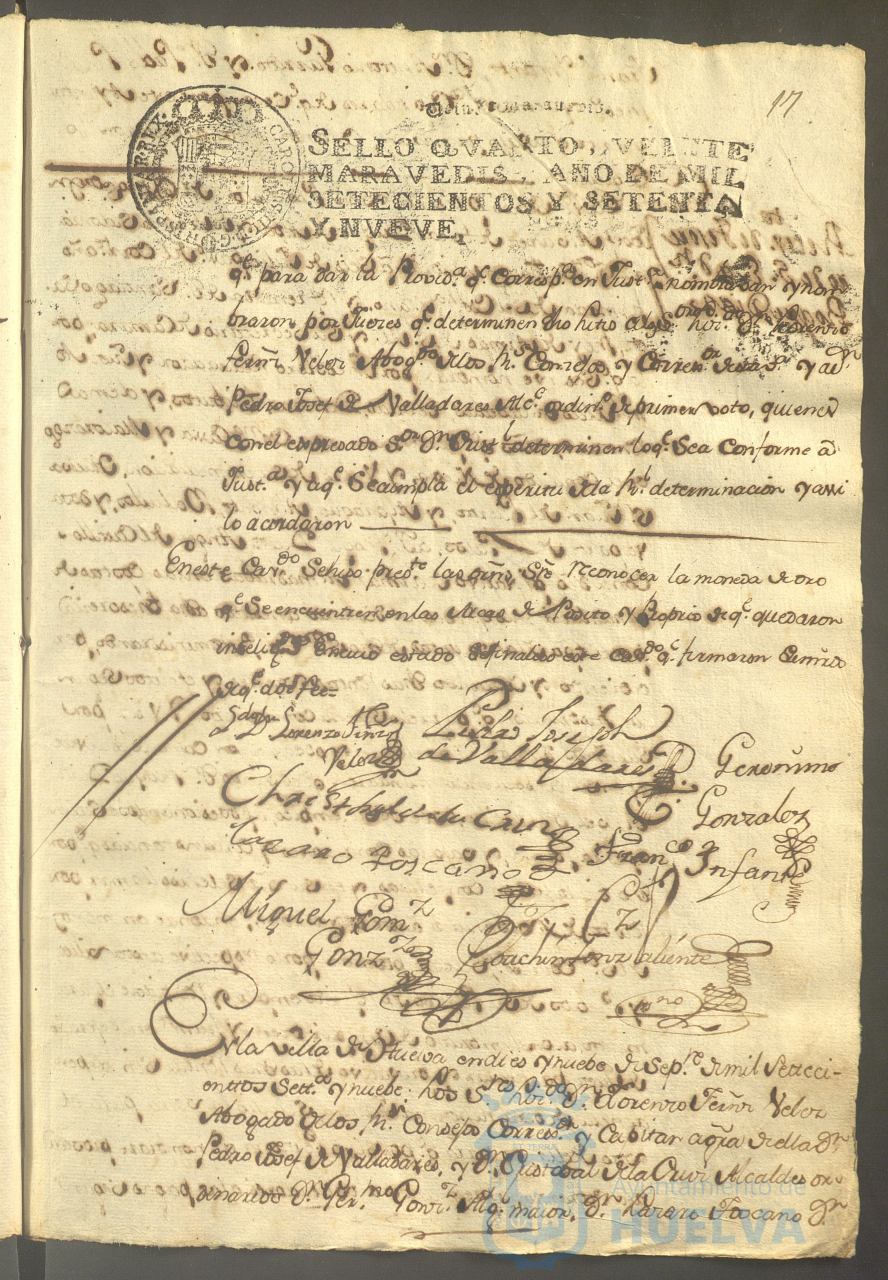 17
Veinte maravedis.
SELLO QVARTO, VEINTE
MARAVEDIS, AÑO DE MIL
SETECIENTOS Y SETENTA
Y NVEVE,
CAROL
q.e para dar la Provid.a q.e corresp.e en Just.a nombraban y nom
braron por Jueces q.e determinen dho a los Lorenzo
Fern.z Velez Abog.do de los R.s Consejos y Corre.or de esta v.a y a d.n
Pedro Josef de Valladares Alc.e ordin.o de primer voto, quienes
con el expresado S.or D.n Crist.l determinen lo q.e sea conforme a
Just.a y a q.e se cumpla el espiritu de la R.l determinacion y assi
lo acordaron
En este Cav.do se hizo pres.te reconocer la moneda de oro
q.e se encuentre en las Arcas de Posito y Propios de q.e quedaron
intelig.dos en cuio estado se finalizo este Cav.do q.e firmaron
de q.e doi fee
D.n Lorenzo Fern.z
Velez
Pedro Joseph
de Valladares
Geronimo
Gonzalez
Christobal de la Cruz
Lazaro Toscano
Fran.co Infante
Miguel Gom.z
Gonz.z
Joachin Gonz Valiente
En la villa de Huelva en dies y nuebe de Sep.re de mil setteci-
enttos sett.ta y nuebe: los S.res D.n Lorenzo Fern.z Velez
Abogado de los R.s Consejos Correg.or y Capitan a gra de ella D.n
Pedro Josef de Valladares, y D.n Cristobal de la Cruz Alcaldes or
dinarios D.n Ger.mo Gonz.z Alg.l maior, D.n Lazaro Toscano D.n
Ayuntamiento de
HUELVA